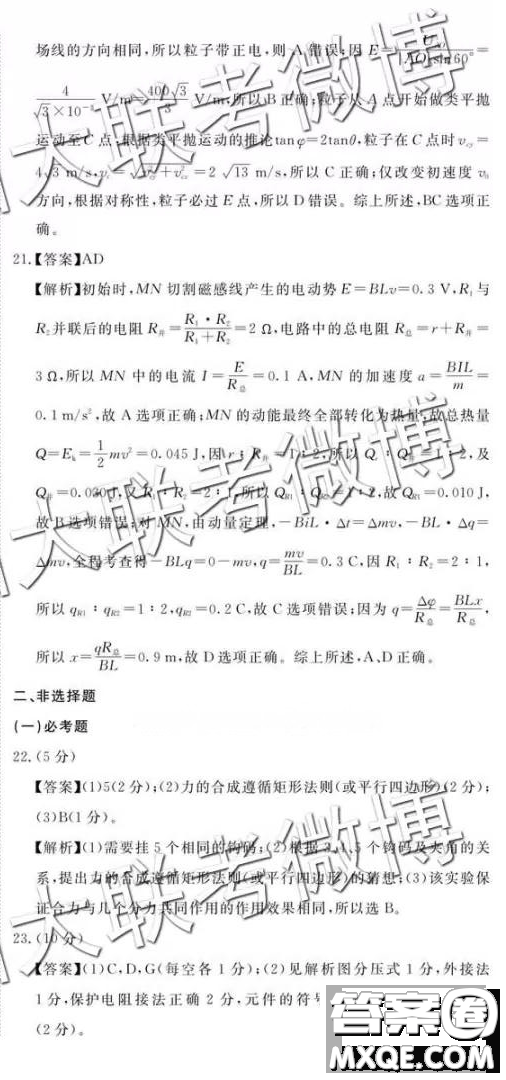 场线的方向相同,所以粒子带正电,则 A 错误;因 E= =
4/√3×10⁻² V/m=400√3/3 V/m,所以 B 正确;粒子从 A 点开始做类平抛
运动至 C 点,根据类平抛运动的推论tanφ=2tanθ,粒子在 C 点时 vcy=
4√3 m/s, =2√13 m/s,所以 C 正确;仅改变初速度 v₀
方向,根据对称性,粒子必过 E 点,所以 D 错误。综上所述,BC 选项正
确。
21.【答案】AD
【解析】初始时,MN 切割磁感线产生的电动势 E=BLv=0.3 V,R₁与
R₂并联后的电阻 R并=R₁·R₂/R₁+R₂=2 Ω,电路中的总电阻 R总=r+R并=
3 Ω,所以 MN 中的电流 I=E/R总=0.1 A,MN 的加速度 a=BIL/m=
0.1 m/s²,故 A 选项正确;MN 的动能最终全部转化为热量,故总热量
Q=Ek=1/2mv²=0.045 J,因 r:R并=1:2,所以 Qr:Q并=1:2,及
Q并=0.030 J,又 R₁:R₂=2:1,所以 QR1:QR2=1:2,故 QR1=0.010 J,
故 B 选项错误;对 MN,由动量定理,-BiL·Δt=Δmv,-BL·Δq=
Δmv,全程考查得-BLq=0-mv,q=mv/BL=0.3 C,因 R₁:R₂=2:1,
所以 qR1:qR2=1:2,qR2=0.2 C,故 C 选项错误;因为 q=Δφ/R总=BLx/R总,
所以 x=qR总/BL=0.9 m,故 D 选项正确。综上所述,A、D 正确。
二、非选择题
(一)必考题
22.(5 分)
【答案】(1)5(2 分);(2)力的合成遵循矩形法则(或平行四边形)(2 分);
(3)B(1 分)。
【解析】(1)需要挂 5 个相同的钩码;(2)根据 3、4、5 个钩码及夹角的关
系,提出力的合成遵循矩形法则(或平行四边形)的猜想;(3)该实验保
证合力与几个分力共同作用的作用效果相同,所以选 B。
23.(10 分)
【答案】(1)C,D,G(每空各 1 分);(2)见解析图分压式 1 分,外接法
1 分,保护电阻接法正确 2 分,元件的符号
(2 分)。
大联考微博
大联考微博
大联考微博
答案圈
MXQE.COM